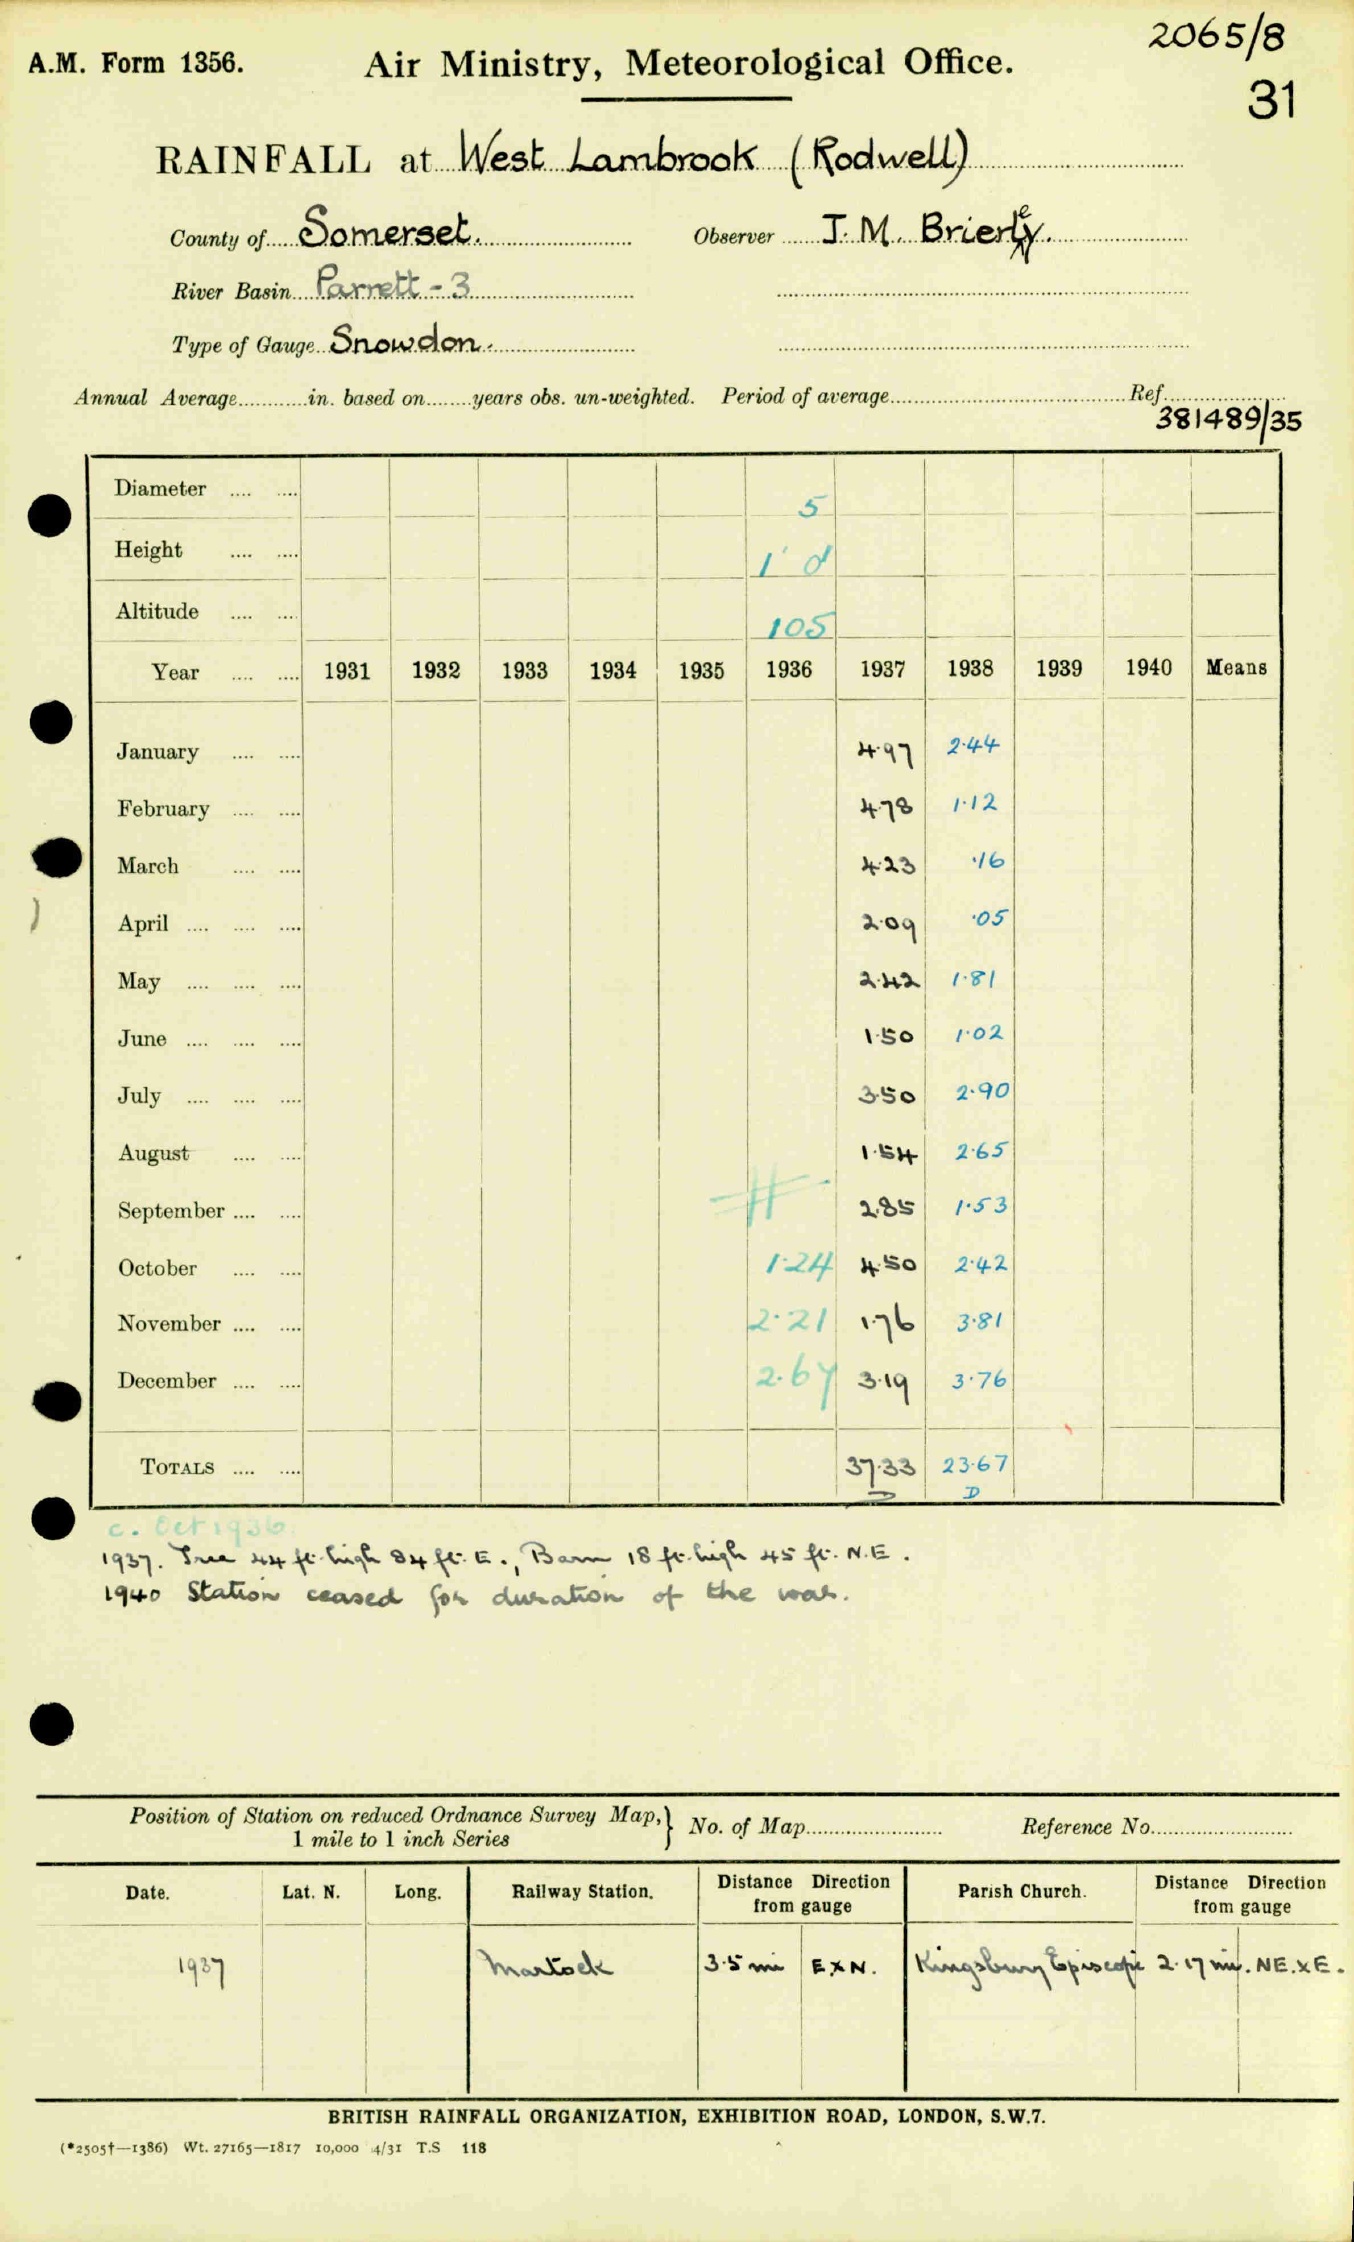 2065/8
A.M. Form 1356. Air Ministry, Meteorological Office.
31
RAINFALL at West Lambrook (Rodwell)
County of Somerset. Observer J. M. Brierley.
River Basin Parrett - 3
Type of Gauge Snowdon.
Annual Average in. based on years obs. un-weighted. Period of average Ref.
381489/35
Diameter 5
Height 1' 0
Altitude 105
Year 1931 1932 1933 1934 1935 1936 1937 1938 1939 1940 Means
January 4.97 2.44
February 4.78 1.12
March 4.23 .16
April 2.09 .05
May 2.42 1.81
June 1.50 1.02
July 3.50 2.90
August 1.54 2.65
September 2.85 1.53
October 1.24 4.50 2.42
November 2.21 1.76 3.81
December 2.67 3.19 3.76
TOTALS 37.33 23.67
D D
c. Oct 1936
1937. Tree 44 ft. high 84 ft. E., Barn 18 ft. high 45 ft. N.E.
1940 Station ceased for duration of the war.
Position of Station on reduced Ordnance Survey Map, } No. of Map Reference No.
1 mile to 1 inch Series
Date. Lat. N. Long. Railway Station. Distance Direction from gauge Parish Church. Distance Direction from gauge
1937 Martock 3.5 mi E x N. Kingsbury Episcopi 2.17 mi. NE. x E.
BRITISH RAINFALL ORGANIZATION, EXHIBITION ROAD, LONDON, S.W.7.
(*2505†—1386) Wt. 27165—1817 10,000 4/31 T.S 118